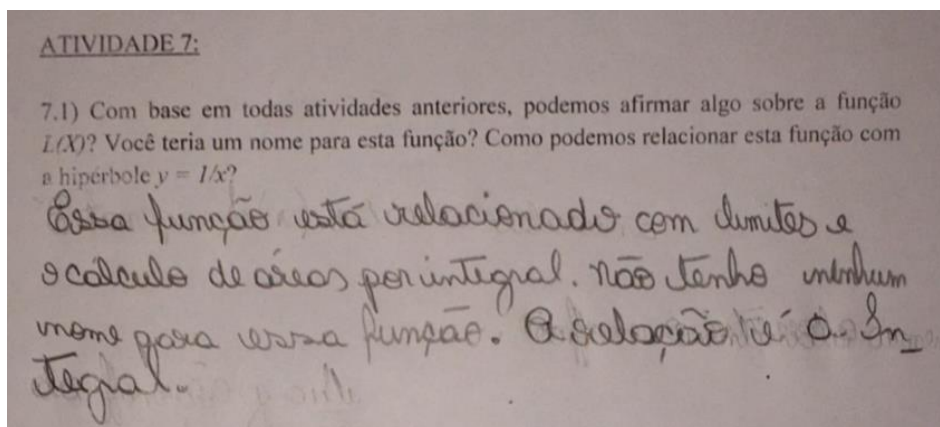 ATIVIDADE 7:
7.1) Com base em todas atividades anteriores, podemos afirmar algo sobre a função
L(X)? Você teria um nome para esta função? Como podemos relacionar esta função com
a hipérbole y = 1/x?
Essa função está relacionado com limites e
o cálculo de áreas por integral. não tenho nenhum
nome para essa função. A relação é a In_
tegral.